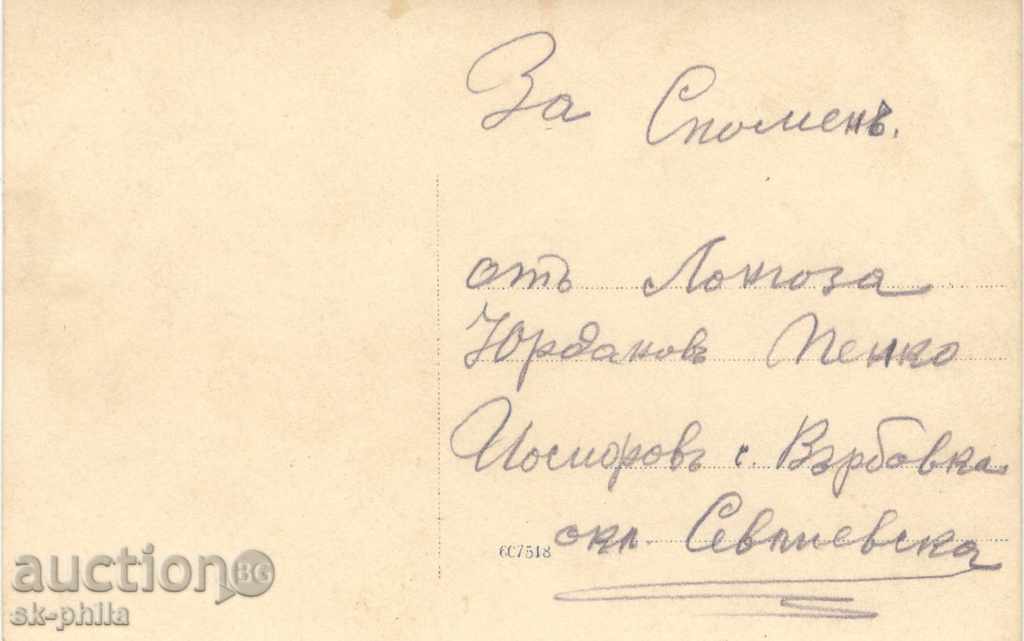 За Споменъ.
отъ Лонгоза
Юрдановъ Пенко
с. Върбовка
окл. Севлиевска
6C7518
auction BG
sk-philla